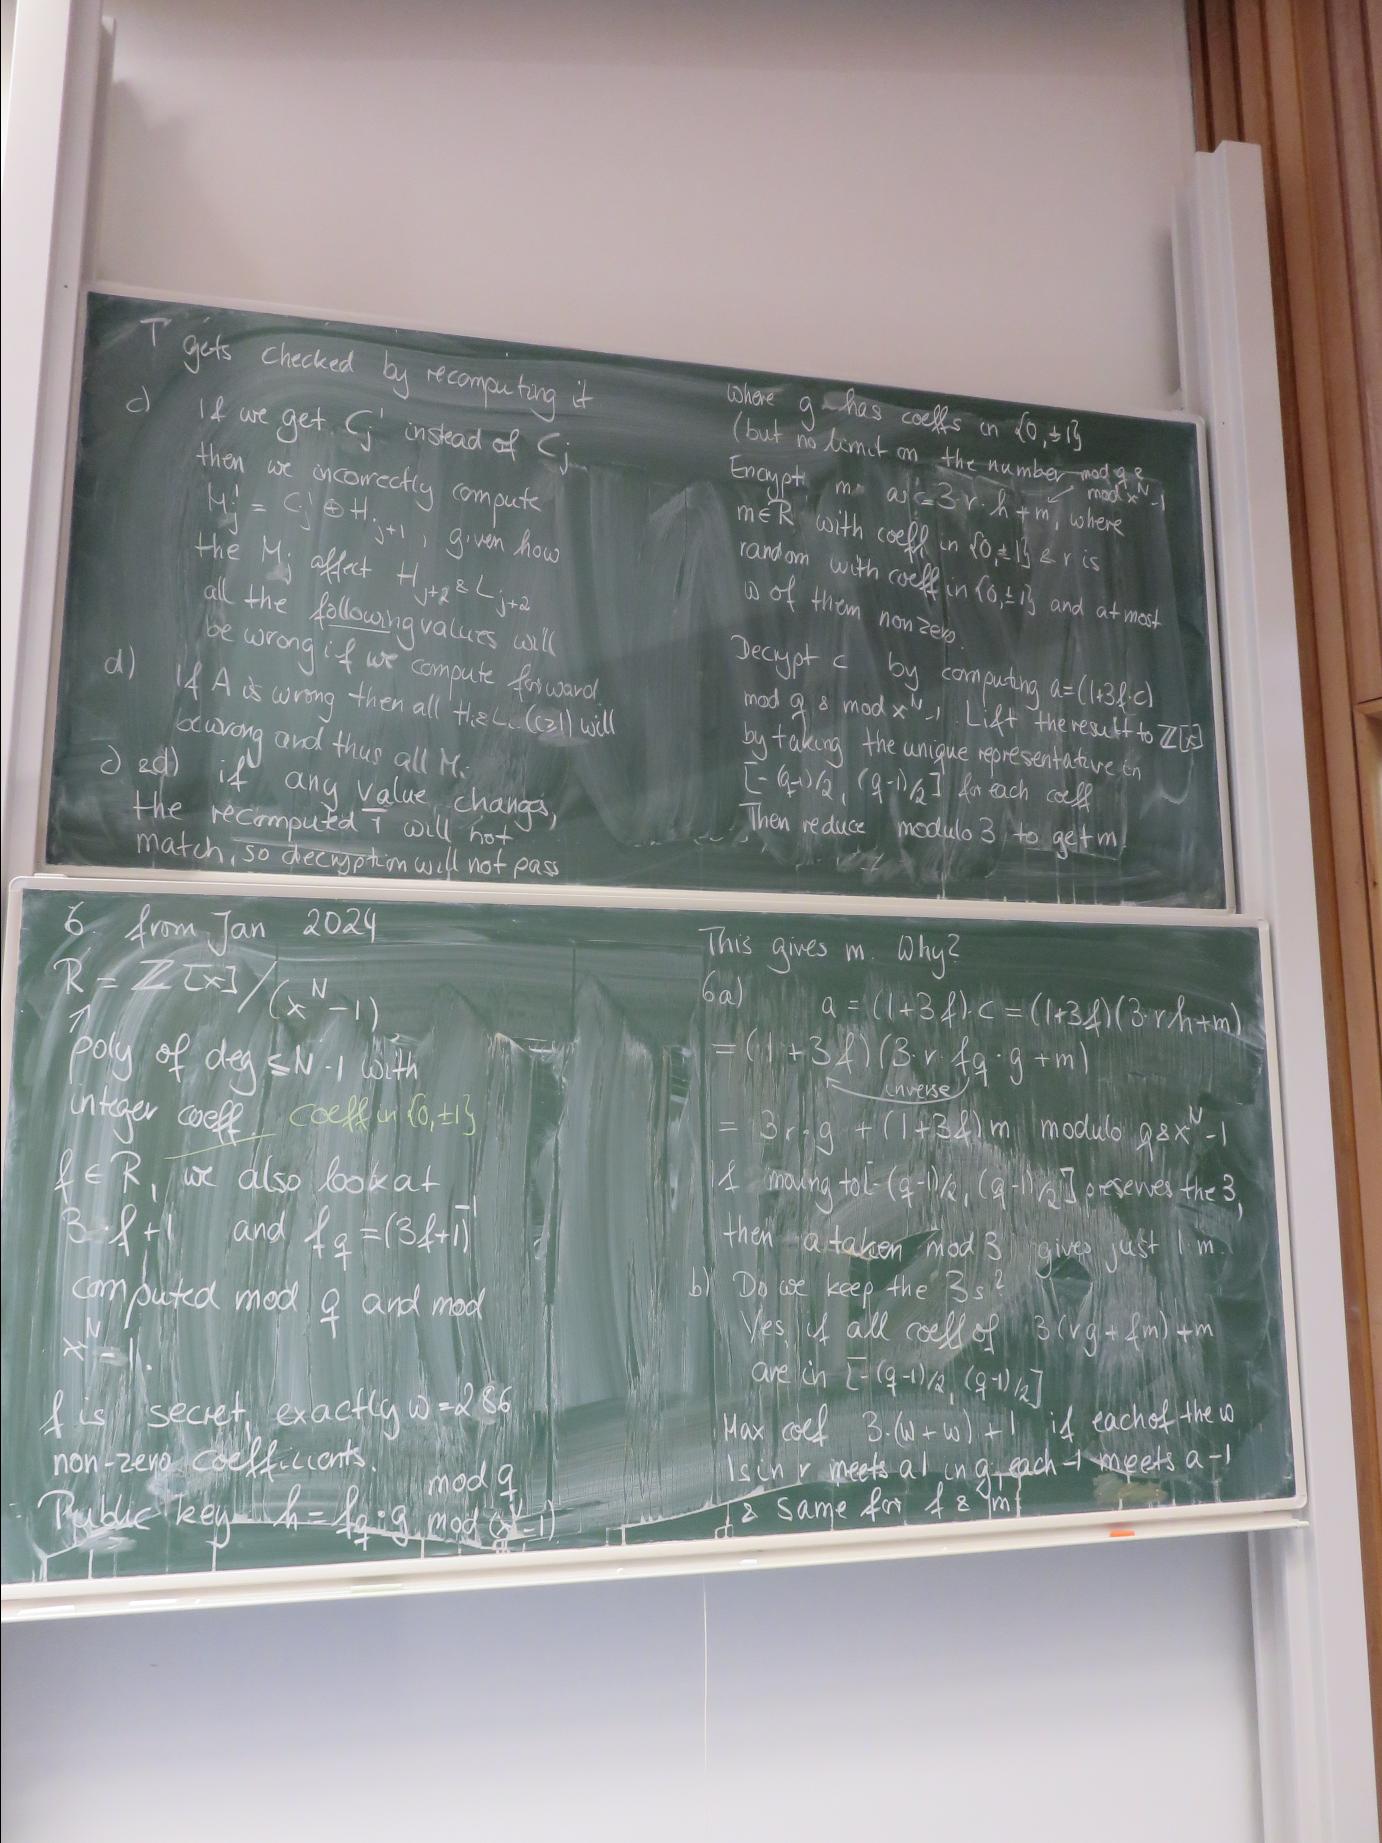 T gets checked by recomputing it
c) If we get C'j instead of Cj
then we incorrectly compute
M'j = C'j ⊕ Hj+1, given how
the Mj affect Hj+2 & Lj+2
all the following values will
be wrong if we compute forward
d) If A is wrong then all Hi & Li (i≥1) will
be wrong and thus all Mi
c) &d) if any value changes,
the recomputed T will not
match, so decryption will not pass
Where g has coeffs in {0,±1}
(but no limit on the number mod q &
Encrypt m as c=3·r·h+m, where mod x^N-1
m∈R with coeff in {0,±1} & r is
random with coeff in {0,±1} and at most
w of them nonzero.
Decrypt c by computing a=(1+3f·c)
mod q & mod x^N-1. Lift the result to ℤ[x]
by taking the unique representative in
[-(q-1)/2, (q-1)/2] for each coeff
Then reduce modulo 3 to get m
6 from Jan 2024
R = ℤ[x]/(x^N-1)
↑
poly of deg ≤N-1 with
integer coeff coeff in {0,±1}
f∈R, we also look at
3·f+1 and fq=(3f+1)^-1
computed mod q and mod
x^N-1.
f is secret, exactly w=286
non-zero coefficients.
mod q
Public key h=fq·g mod (x^N-1)
This gives m. Why?
6a) a = (1+3f)·c = (1+3f)(3·r·h+m)
= (1+3f)(3·r·fq·g+m)
inverse
= 3r·g + (1+3f)m modulo q&x^N-1
If moving to [-(q-1)/2, (q-1)/2] preserves the 3,
then a taken mod 3 gives just 1·m.
b) Do we keep the 3s?
Yes, if all coeff of 3(rg+fm)+m
are in [-(q-1)/2, (q-1)/2]
Max coef 3·(w+w)+1 if each of the w
1s in r meets a 1 in g, each -1 meets a -1
& same for f & m